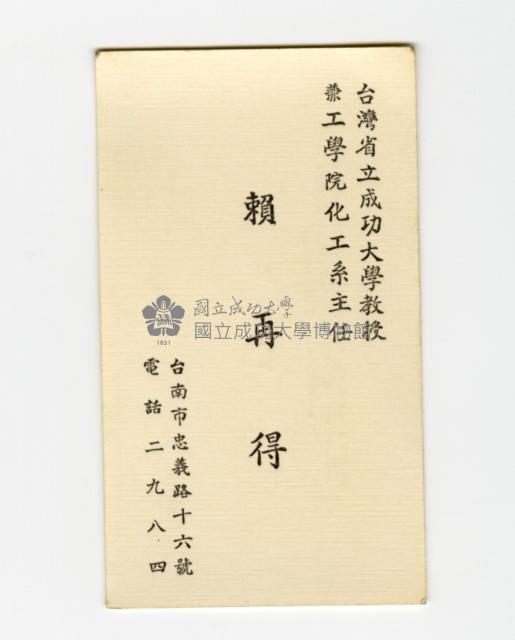 台灣省立成功大學教授
兼工學院化工系主任
賴再得
台南市忠義路十六號
電話二九八四
國立成功大學
國立成功大學博物館
1931